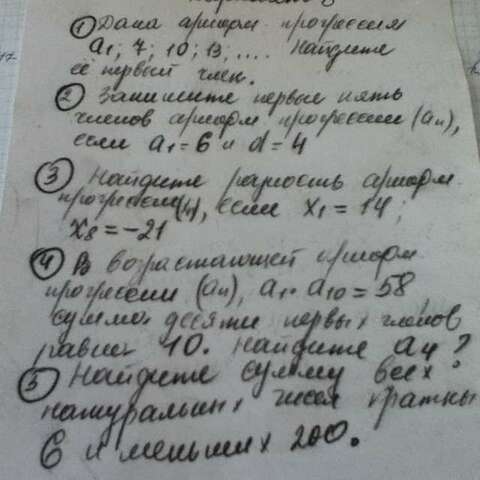 ① Дана арифм. прогрессия
a1; 7; 10; 13; .... Найдите
её первый член.
② Запишите первые пять
членов арифм прогрессии (an),
если a1=6 и d=4
③ Найдите разность арифм.
прогрессии, если x1=14;
x8=-21
④ В возрастающей арифм
прогрессии (an), a1·a10=58
сумма десяти первых членов
равна 10. Найдите a4?
5 Найдите сумму всех
натуральных чисел кратных
6 и меньших 200.